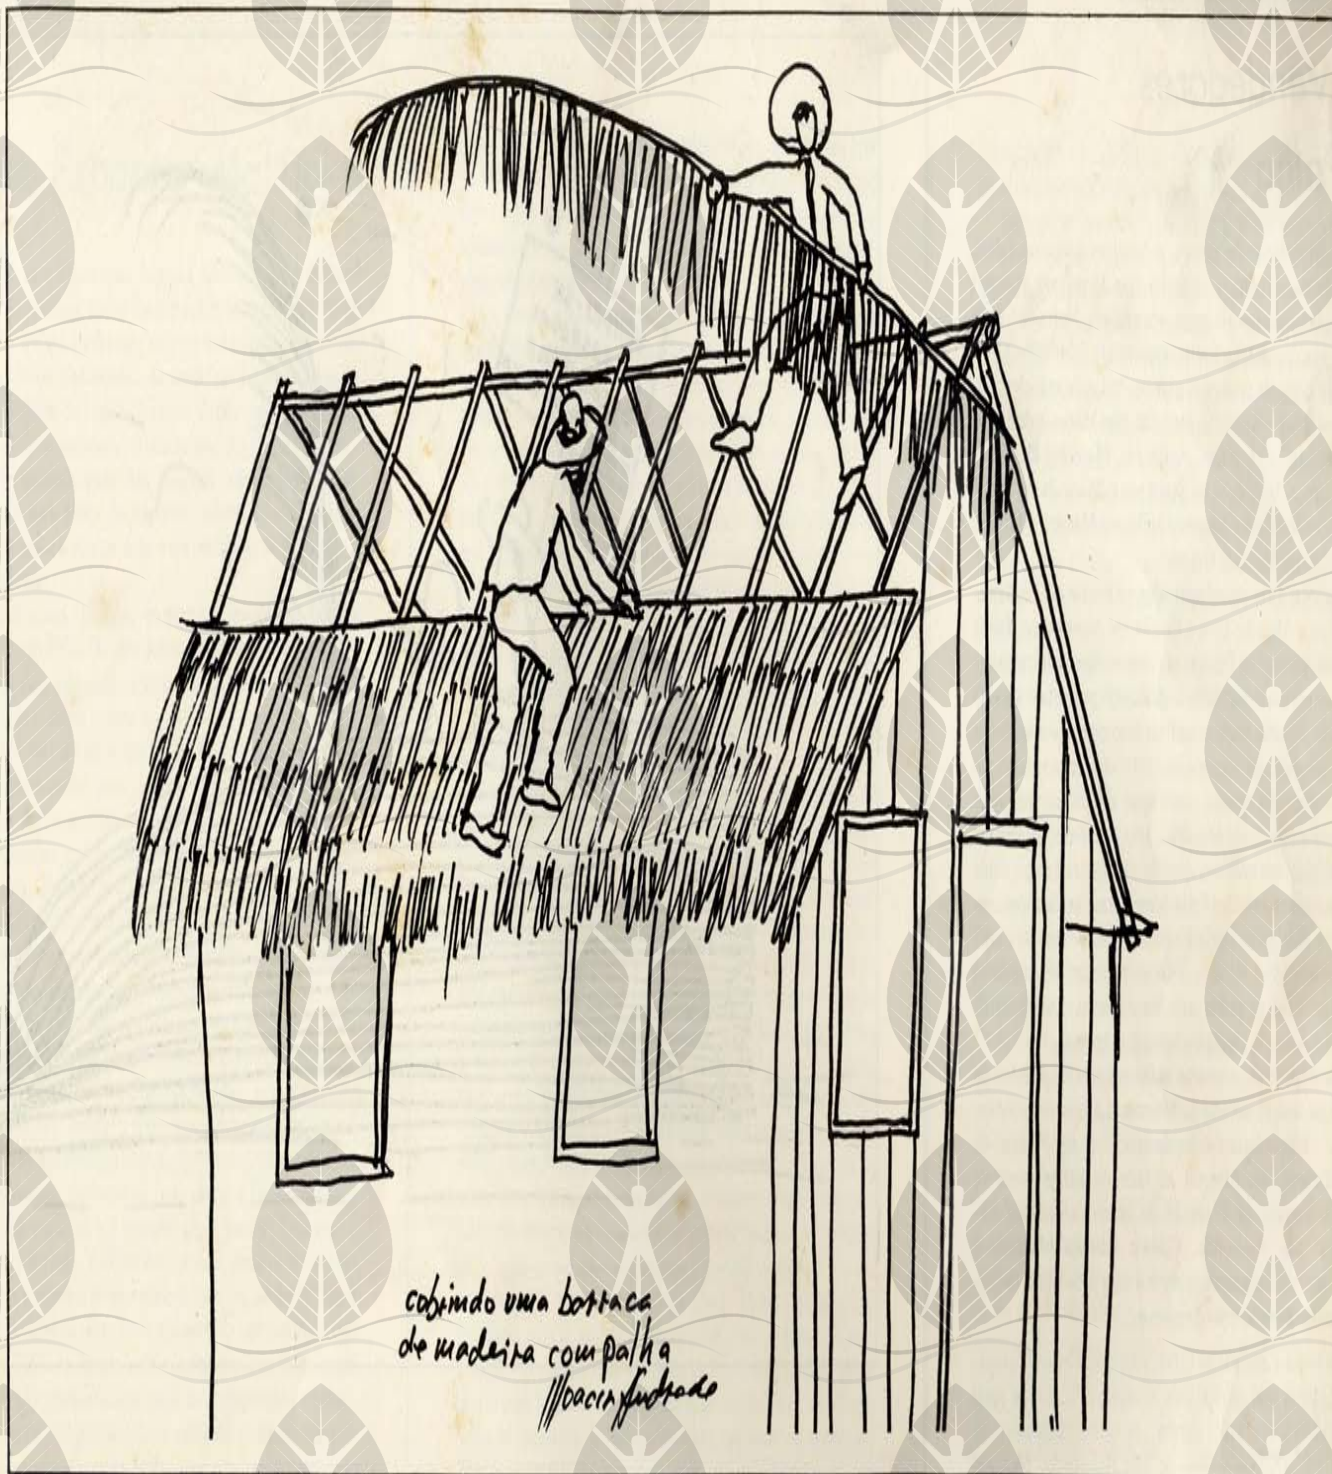 cobrindo uma barraca
de madeira com palha
Moacir Andrade